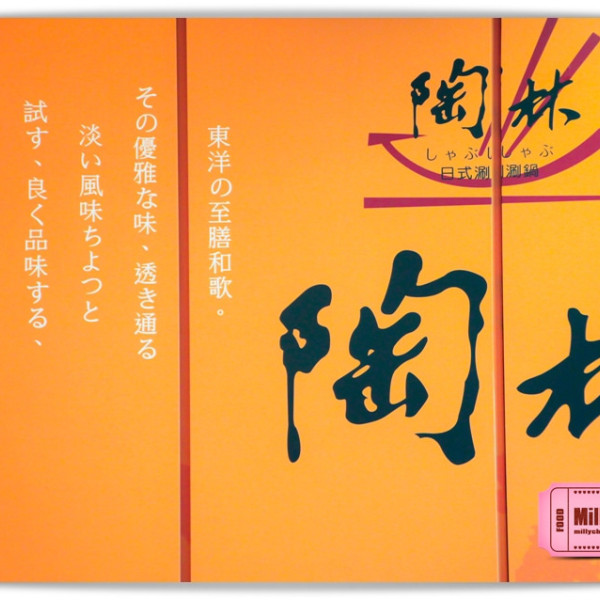 陶林
しゃぶしゃぶ
日式涮涮鍋
東洋の至膳和歌。
その優雅な味、透き通る
淡い風味ちよつと
試す、良く品味する、
陶林
FOOD